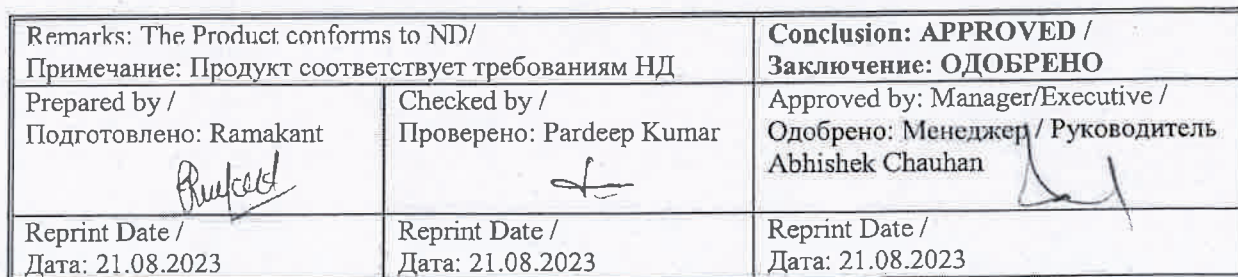 Remarks: The Product conforms to ND/
Примечание: Продукт соответствует требованиям НД
Conclusion: APPROVED /
Заключение: ОДОБРЕНО
Prepared by /
Подготовлено: Ramakant
Checked by /
Проверено: Pardeep Kumar
Approved by: Manager/Executive /
Одобрено: Менеджер / Руководитель
Abhishek Chauhan
Reprint Date /
Дата: 21.08.2023
Reprint Date /
Дата: 21.08.2023
Reprint Date /
Дата: 21.08.2023